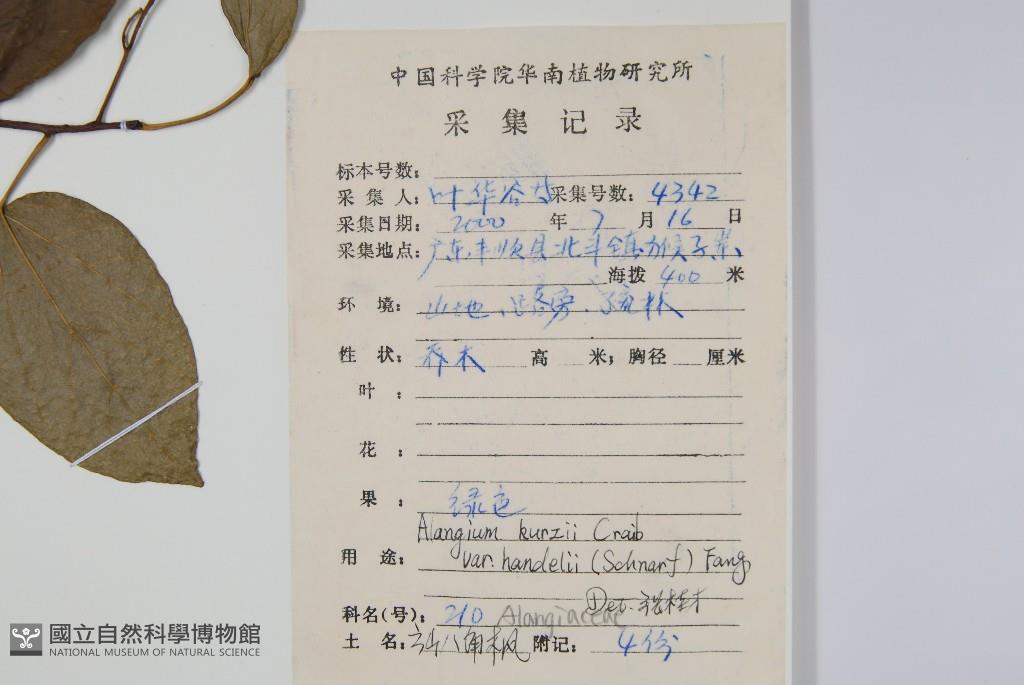 中国科学院华南植物研究所
采集记录
标本号数:
采集人: 叶华谷 采集号数: 4342
采集日期: 2000 年 7 月 16 日
采集地点: 广东丰顺县北斗镇
海拨 400 米
环境: 山地、路旁、疏林
性状: 乔木 高 米; 胸径 厘米
叶:
花:
果: 绿色
Alangium kurzii Craib
用途: var. handelii (Schnarf) Fang
Det.
科名(号): 210 Alangiaceae
土名: 八角枫 附记: 4份
國立自然科學博物館
NATIONAL MUSEUM OF NATURAL SCIENCE